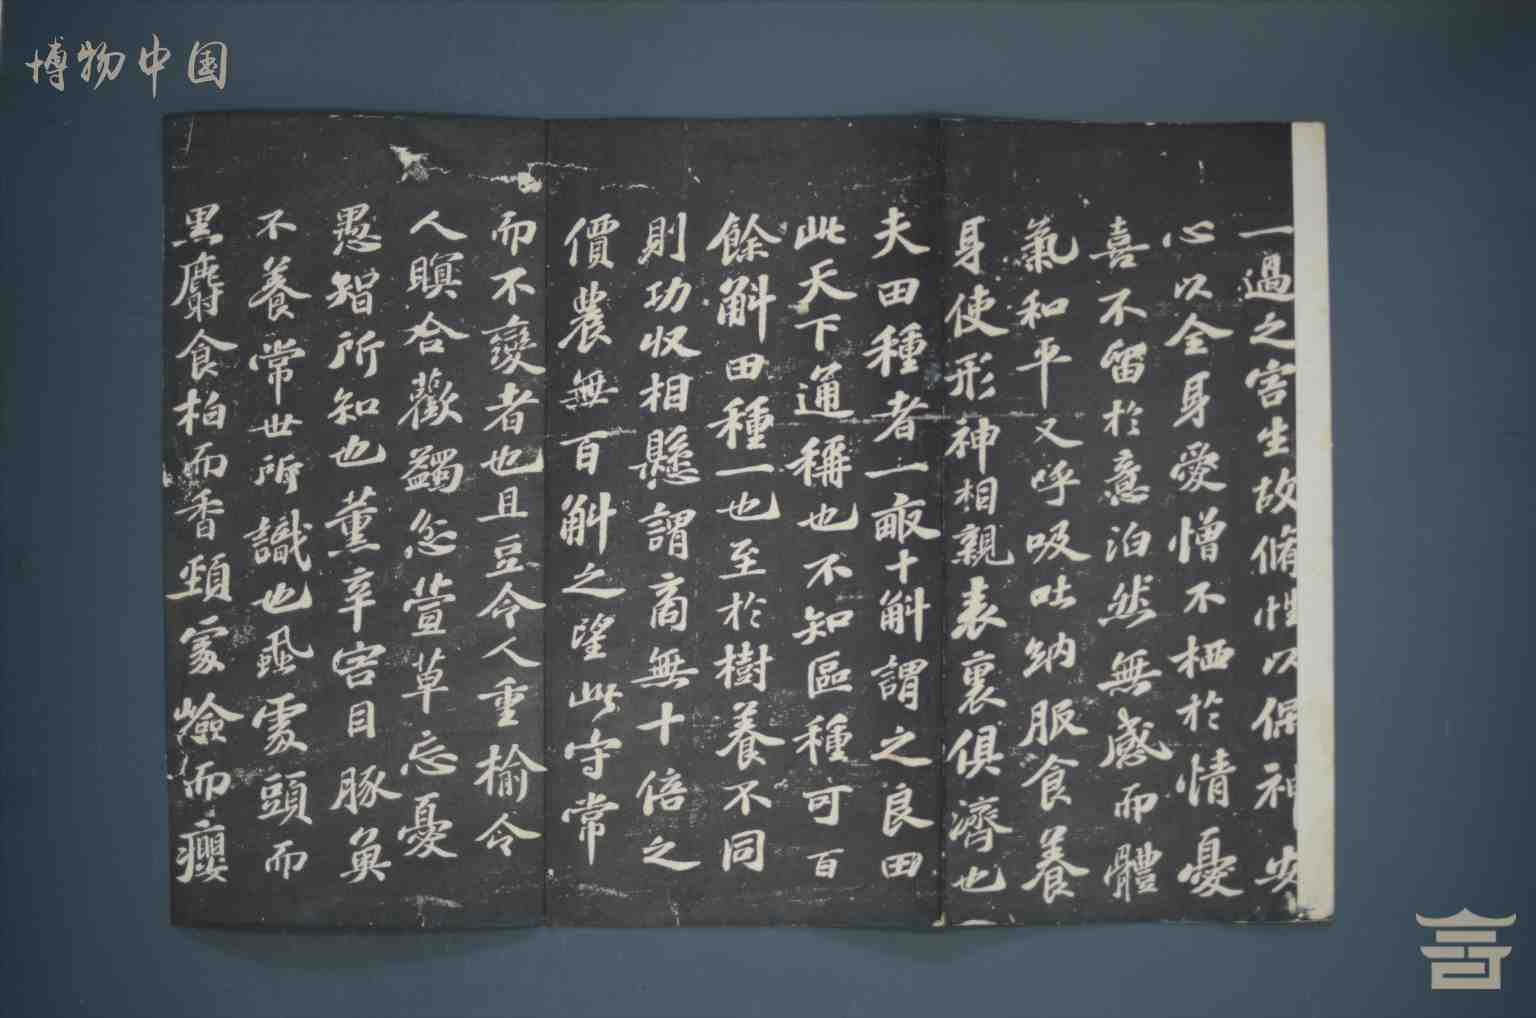 博物中国
一過之害生故脩性以保神安
心以全身愛憎不栖於情憂
喜不留於意泊然無感而體
氣和平又呼吸吐納服食養
身使形神相親表裏俱濟也
夫田種者一畝十斛謂之良田
此天下通稱也不知區種可百
餘斛田種一也至於樹養不同
則功収相懸謂商無十倍之
價農無百斛之望此守常
而不變者也且豆令人重榆令
人瞑合歡蠲忿萱草忘憂
愚智所知也薰辛害目豚魚
不養常世所識也虱處頭而
黑麝食柏而香頸處險而癭